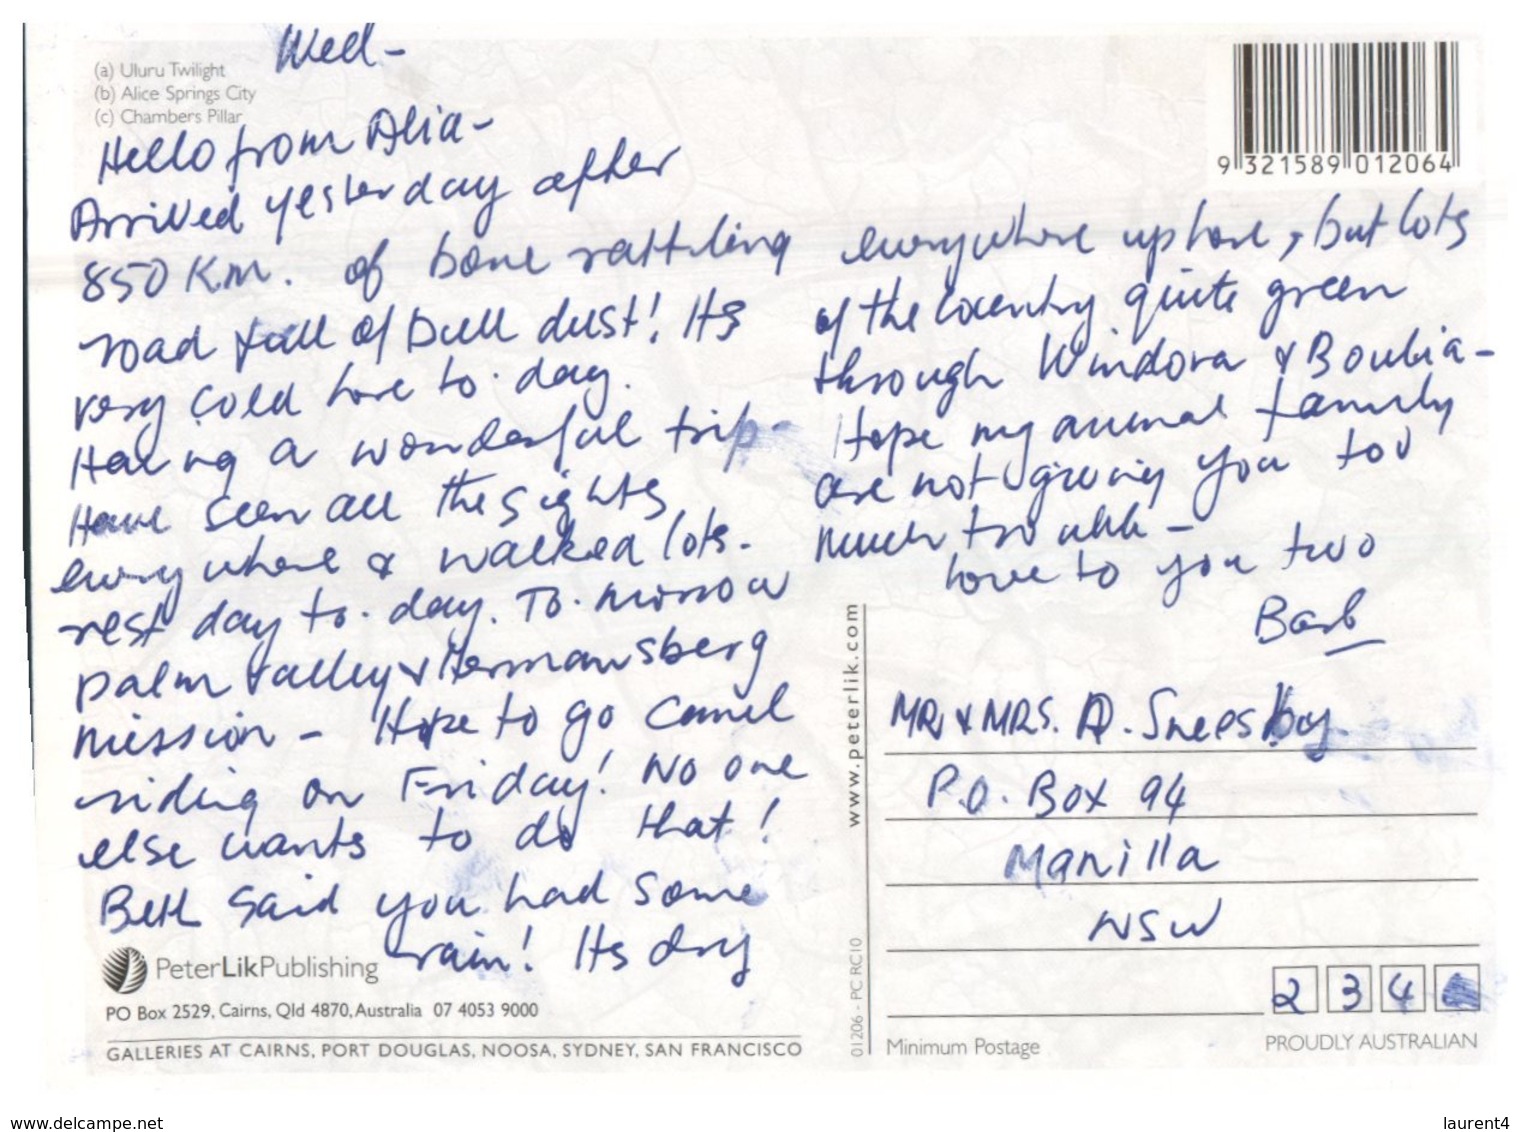 Wed -
(a) Uluru Twilight
(b) Alice Springs City
(c) Chambers Pillar
Hello from Alia -
Arrived yesterday after
850 Km. of bone rattling
road full of Bull dust! Its
very cold here to.day.
Having a wonderful trip -
Have seen all the sights
everywhere & walked lots.
rest day to.day. To.morrow
palm valley & Hermansberg
mission - Hope to go camel
riding on Friday! No one
else wants to do that!
Beth said you had some
rain! Its dry
PeterLikPublishing
PO Box 2529, Cairns, Qld 4870, Australia 07 4053 9000
GALLERIES AT CAIRNS, PORT DOUGLAS, NOOSA, SYDNEY, SAN FRANCISCO
9 321589 012064
everywhere up here, but lots
of the country quite green
through Windora & Boulia -
Hope my animal family
are not giving you too
much trouble -
love to you two
Barb
www.peterlik.com
01206 - PC RC10
MR & MRS. D. Sneesby
P.O. Box 94
Manilla
NSW
2 3 4
Minimum Postage
PROUDLY AUSTRALIAN
www.delcampe.net
laurent4